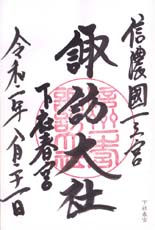 信濃國一之宮
諏訪大社
下社春宮
令和年八月日
下社春宮